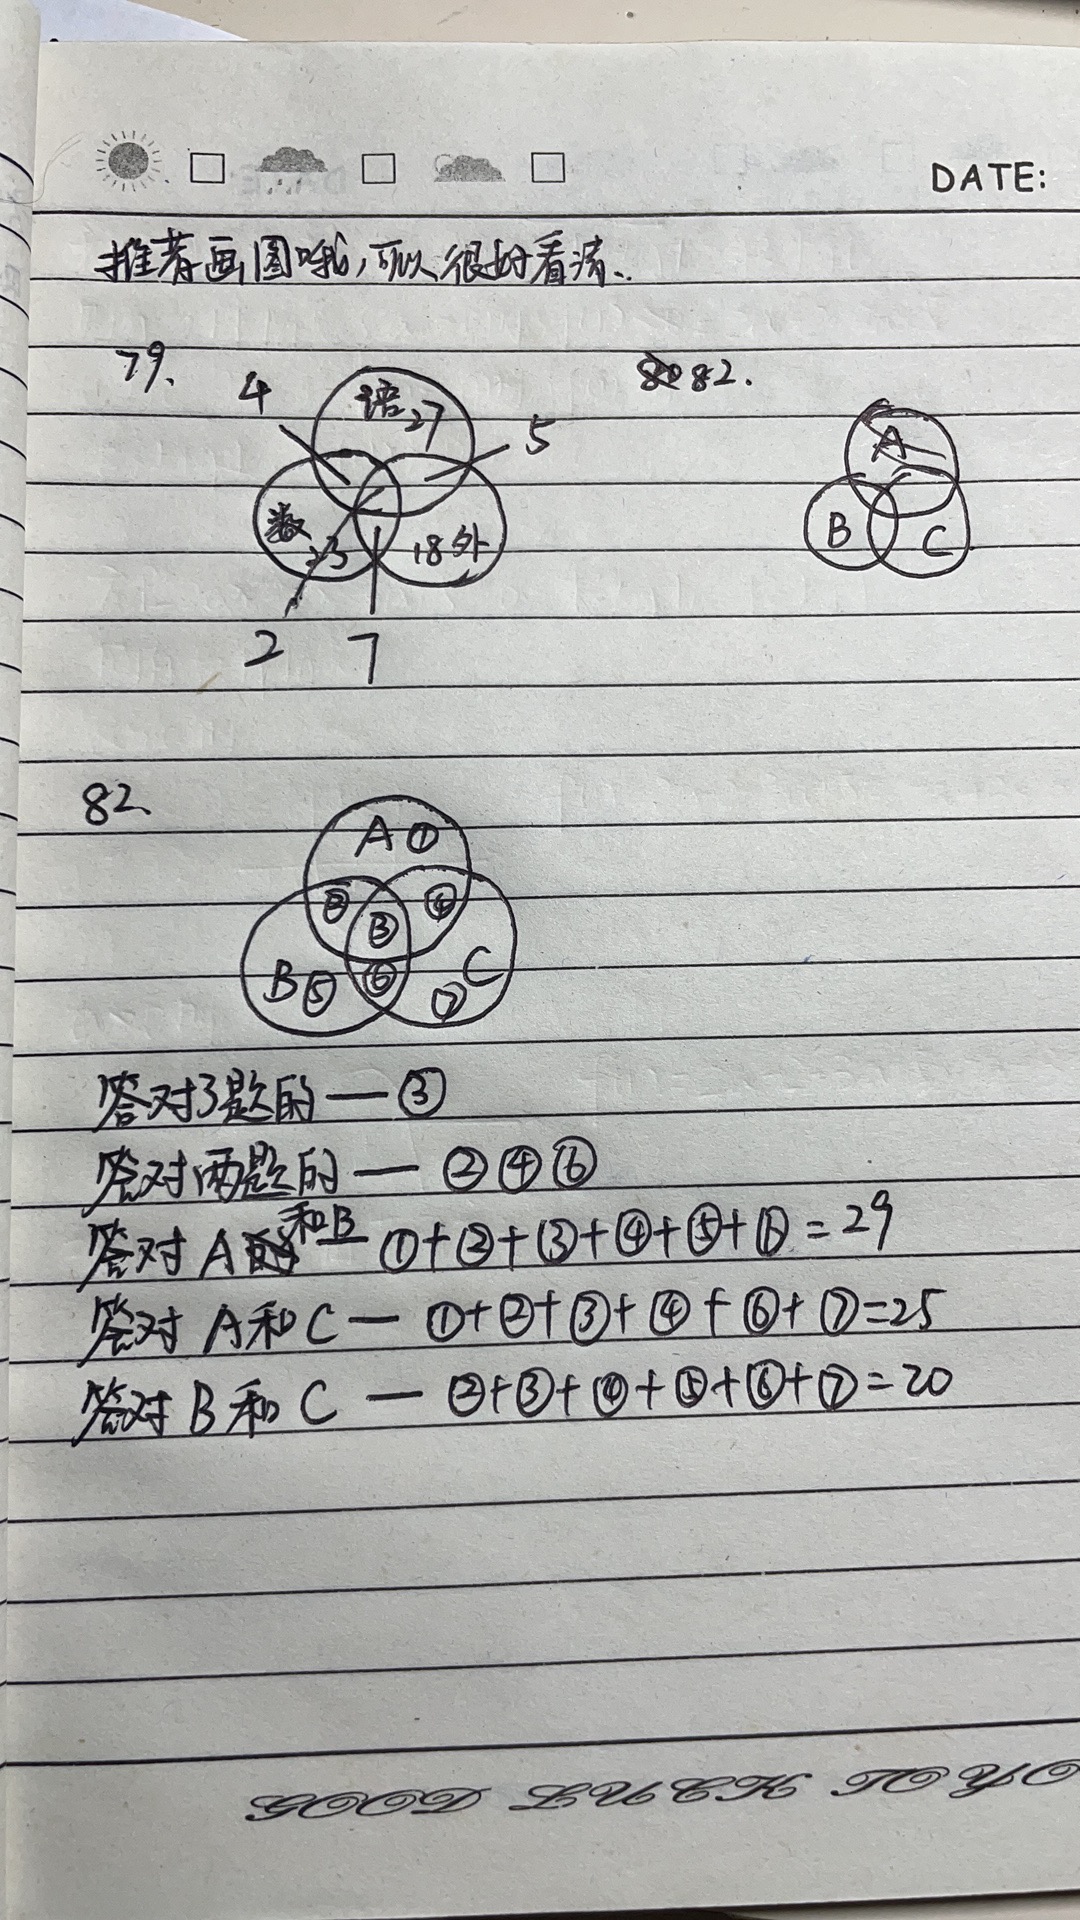 DATE:
推荐画图哦,可以很好看清..
79. 82.
4 语27 5 A
数 23 18外 B C
2 7
82.
A①
② ④
③
B⑤ ⑥ C
⑦
答对3题的 — ③
答对两题的 — ②④⑥
答对A和B ①+②+③+④+⑤+⑥=29
答对A和C — ①+②+③+④+⑥+⑦=25
答对B和C — ②+③+④+⑤+⑥+⑦=20
GOOD LUCK TO YO